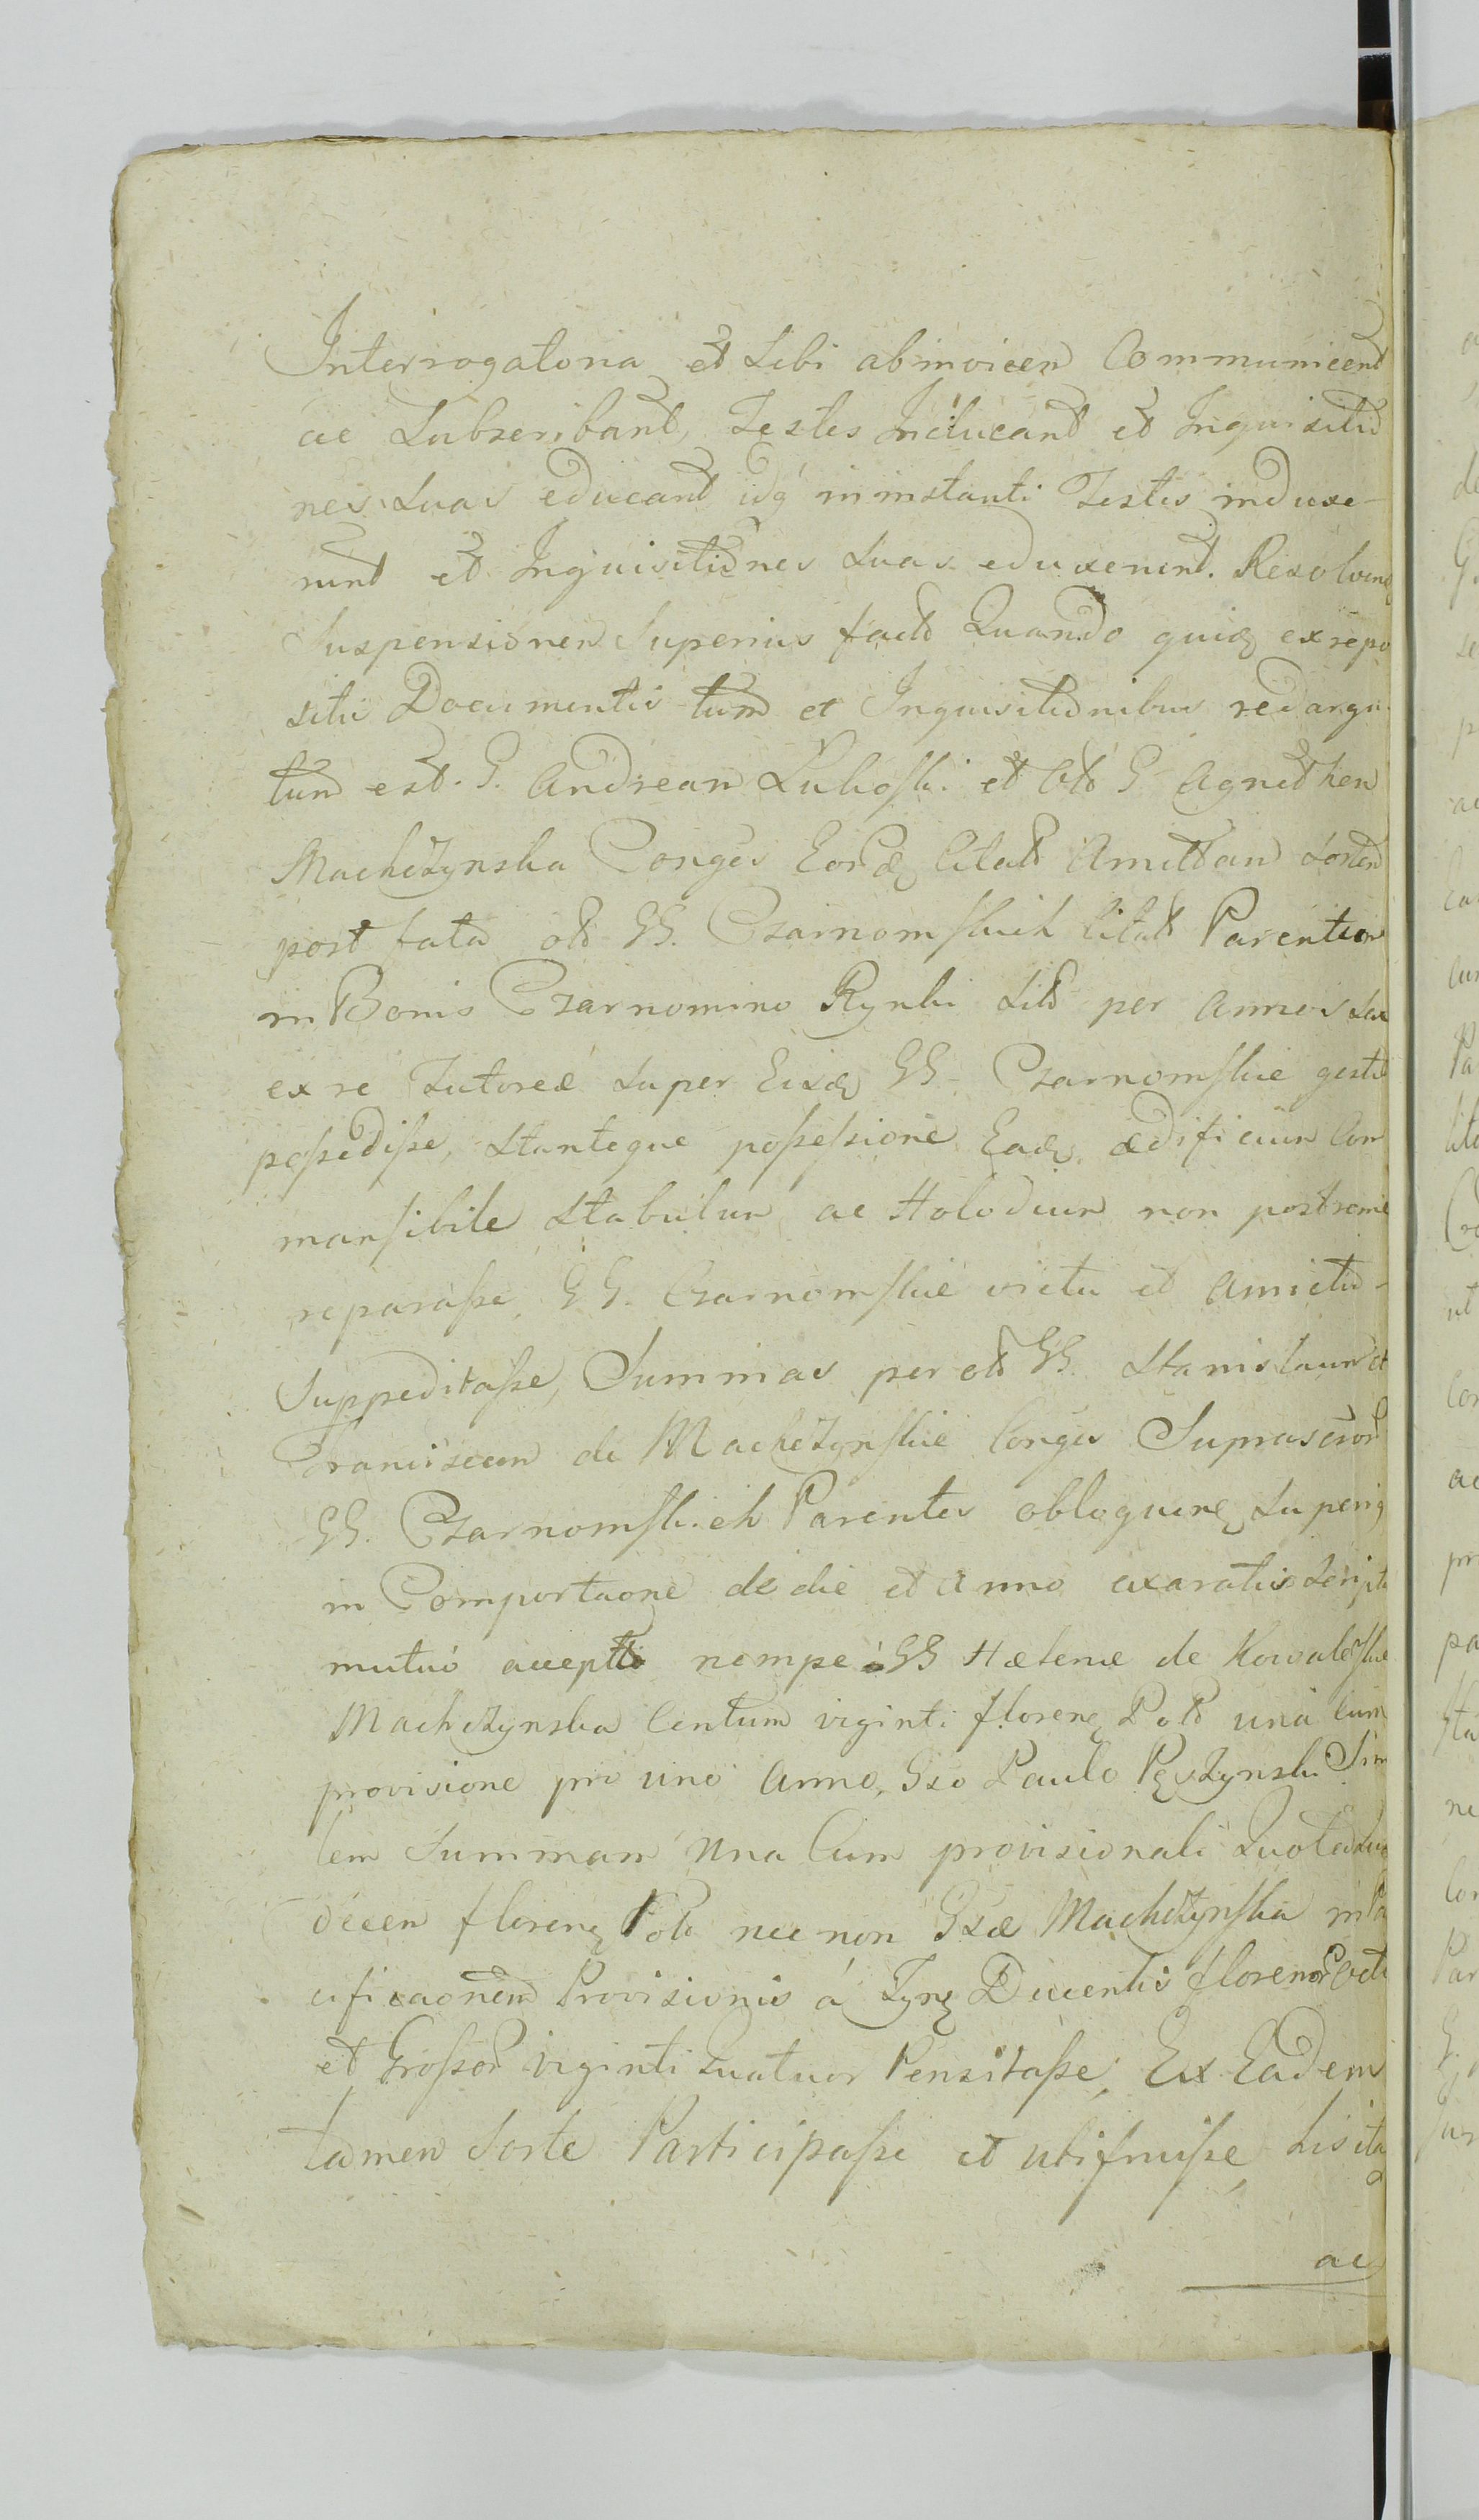 Interrogatoria et Sibi abinvicem Communicent
ac Subscribant, Testes Inducant et Inquisitio
nes Suas educant idq in instanti Testes induxe-
runt et Inquisitiones Suas eduxerunt. Resolven
Suspensionem Superius fact Quando quid ex repo
sitis Documentis tum et Inquisitionibus redargu
tum est. G. Andream et Ol G Agnethem
Machczynska Conges Citat Amittam Sortem
post fata ol GG. Czarnomskich Citat Parentum
in Bonis Czarnomino Rynki Sit per Annos Sex
ex re Tutoreæ Super GG. Czarnomskie gesta
possedisse, Stanteque possessione Ead ædificium Com
mansibile Stabulum ac Holodium non postreme
reparasse, GG. Czarnomskie victu et Amictu-
Suppeditasse, Summas per ol GG. Stanislaum et
Franciscam de Machczynskie Conges Suprascror
GG. Czarnomskich Parentes obloquen Superiq
in Comportaone de die et Anno exaratis Script
mutuo accepto nempe á GG Hælenæ de Kowalefskie
Machczynska Centum viginti floren Pol una cum
provisione pro uno Anno, Gso Paulo Sim
lem Summam Una Cum provisionali Quota
decem floren Pol nec non Gsæ Machczynska in Pa
cificaonem Provisionis á Tyn Ducentis florenor Octo
et Grossor viginti Quatuor Pensitasse, Ex Eadem
tamen Sorte Participasse et utifruisse, his ita
ac